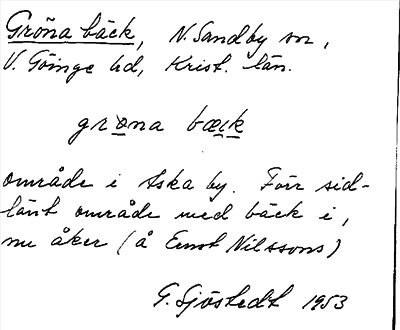 Gröna bäck, N. Sandby sn,
V. Göinge hd, Krist. län.
grøna bæck
område i Aska by. Förr sid-
länt område med bäck i,
nu åker (å Ernst Nilssons)
G. Sjöstedt 1953